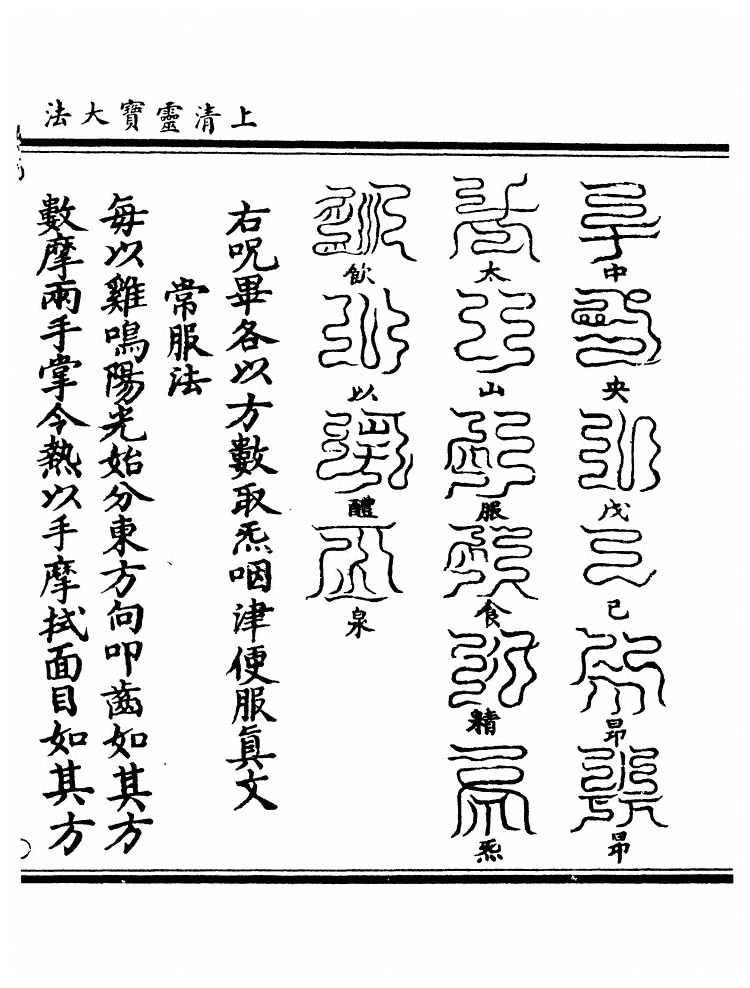 上清靈寶大法
中央戊己昂昂
太山服食精炁
飲以醴泉
右呪畢各以方數取炁咽津便服眞文
常服法
每以雞鳴陽光始分東方向叩齒如其方
數摩兩手掌令熱以手摩拭面目如其方